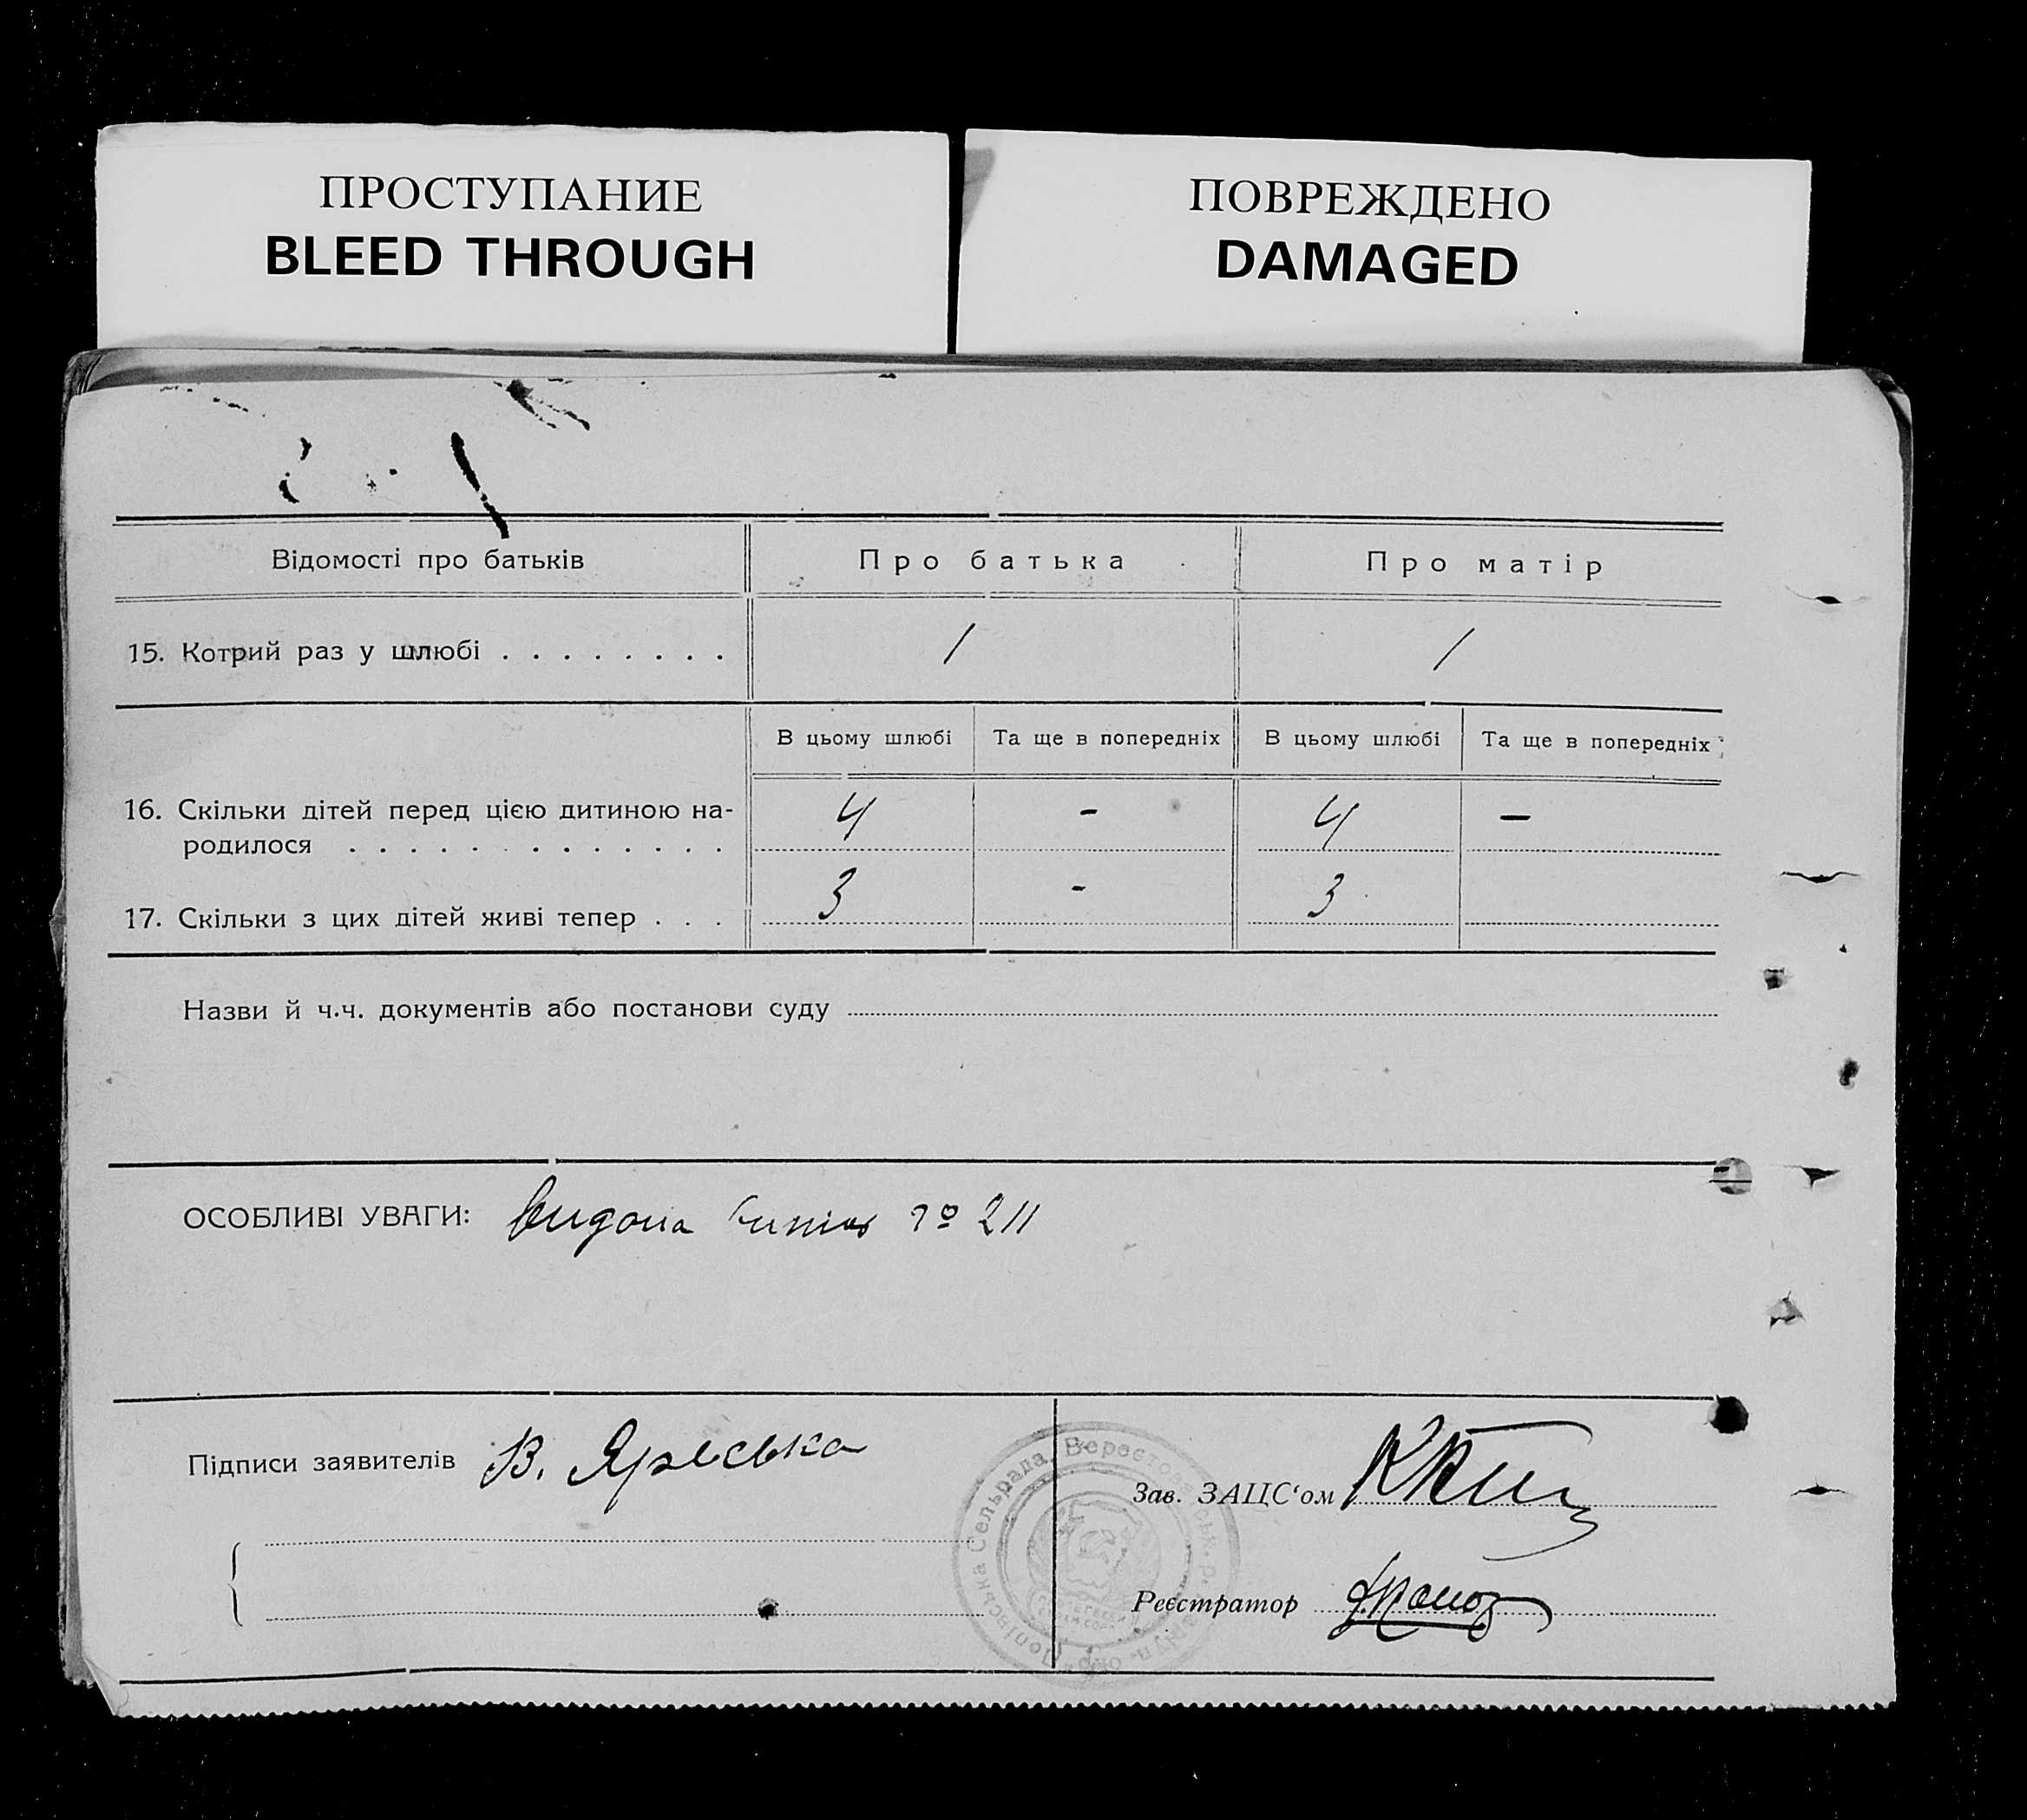 ПРОСТУПАНИЕ
BLEED THROUGH
ПОВРЕЖДЕНО
DAMAGED
Відомості про батьків
Про батька
Про матір
15. Котрий раз у шлюбі . . . . . . . .
/
/
В цьому шлюбі
Та ще в попередніх
В цьому шлюбі
Та ще в попередніх
16. Скільки дітей перед цією дитиною на-
родилося . . . . . . . . . . . . .
4
-
4
-
17. Скільки з цих дітей живі тепер . . .
3
-
3
Назви й ч.ч. документів або постанови суду
ОСОБЛИВІ УВАГИ: № 211
Підписи заявителів В. Яреська
Зав. ЗАЦС‘ом
Реєстратор
Попівська Сельрада, Верестов